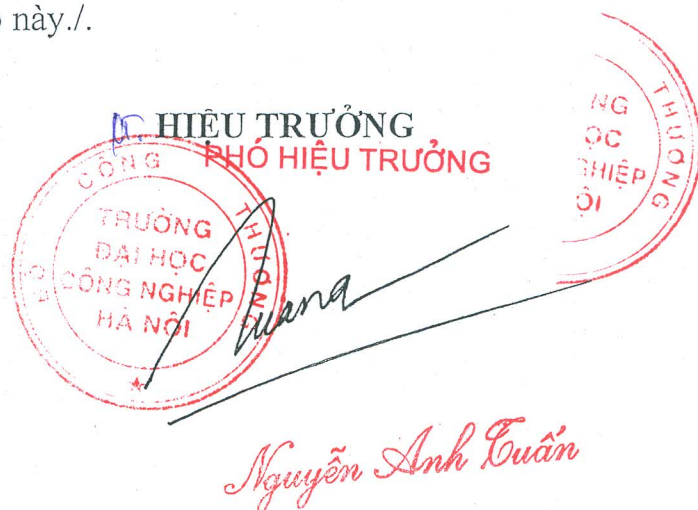 này./.
KT. HIỆU TRƯỞNG
PHÓ HIỆU TRƯỞNG
BỘ CÔNG THƯƠNG
TRƯỜNG
ĐẠI HỌC
CÔNG NGHIỆP
HÀ NỘI
NG
ỌC
GHIỆP
ỘI
THƯƠNG
Nguyễn Anh Tuấn